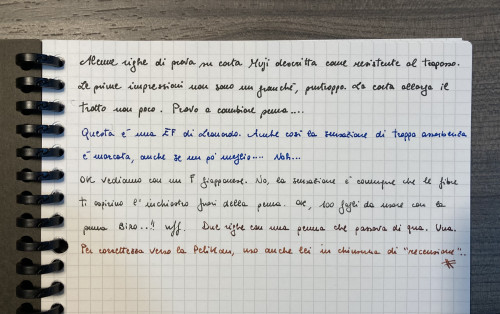 Alcune righe di prova su carta Muji descritta come resistente al trapasso.
Le prime impressioni non sono un granché, purtroppo. La carta allarga il
tratto non poco. Provo a cambiare penna....
Questa è una EF di Leonardo. Anche così la sensazione di troppa assorbenza
è marcata, anche se un po' meglio.... Nah...
OK vediamo con un F giapponese. No, la sensazione è comunque che le fibre
ti aspirino l'inchiostro fuori della penna. OK, 100 fogli da usare con la
penna Biro...!! uff. Due righe con una penna che passava di qua. Una.
Per correttezza verso la Pelikan, uso anche lei in chiusura di "recensione"..